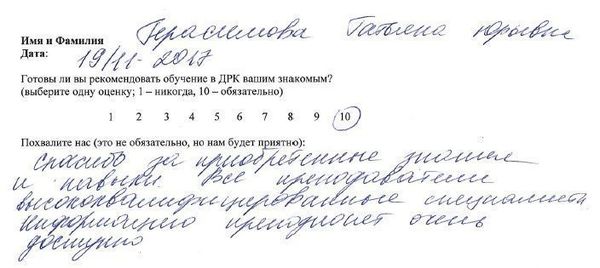 Имя и Фамилия Герасимова Татьяна Юрьевна
Дата: 19/11-2017
Готовы ли вы рекомендовать обучение в ДРК вашим знакомым?
(выберите одну оценку; 1 – никогда, 10 – обязательно)
1 2 3 4 5 6 7 8 9 10
Похвалите нас (это не обязательно, но нам будет приятно):
Спасибо за приобретенные знания
и навыки. Все преподаватели
высококвалифицированные специалисты
информацию преподносят очень
доступно